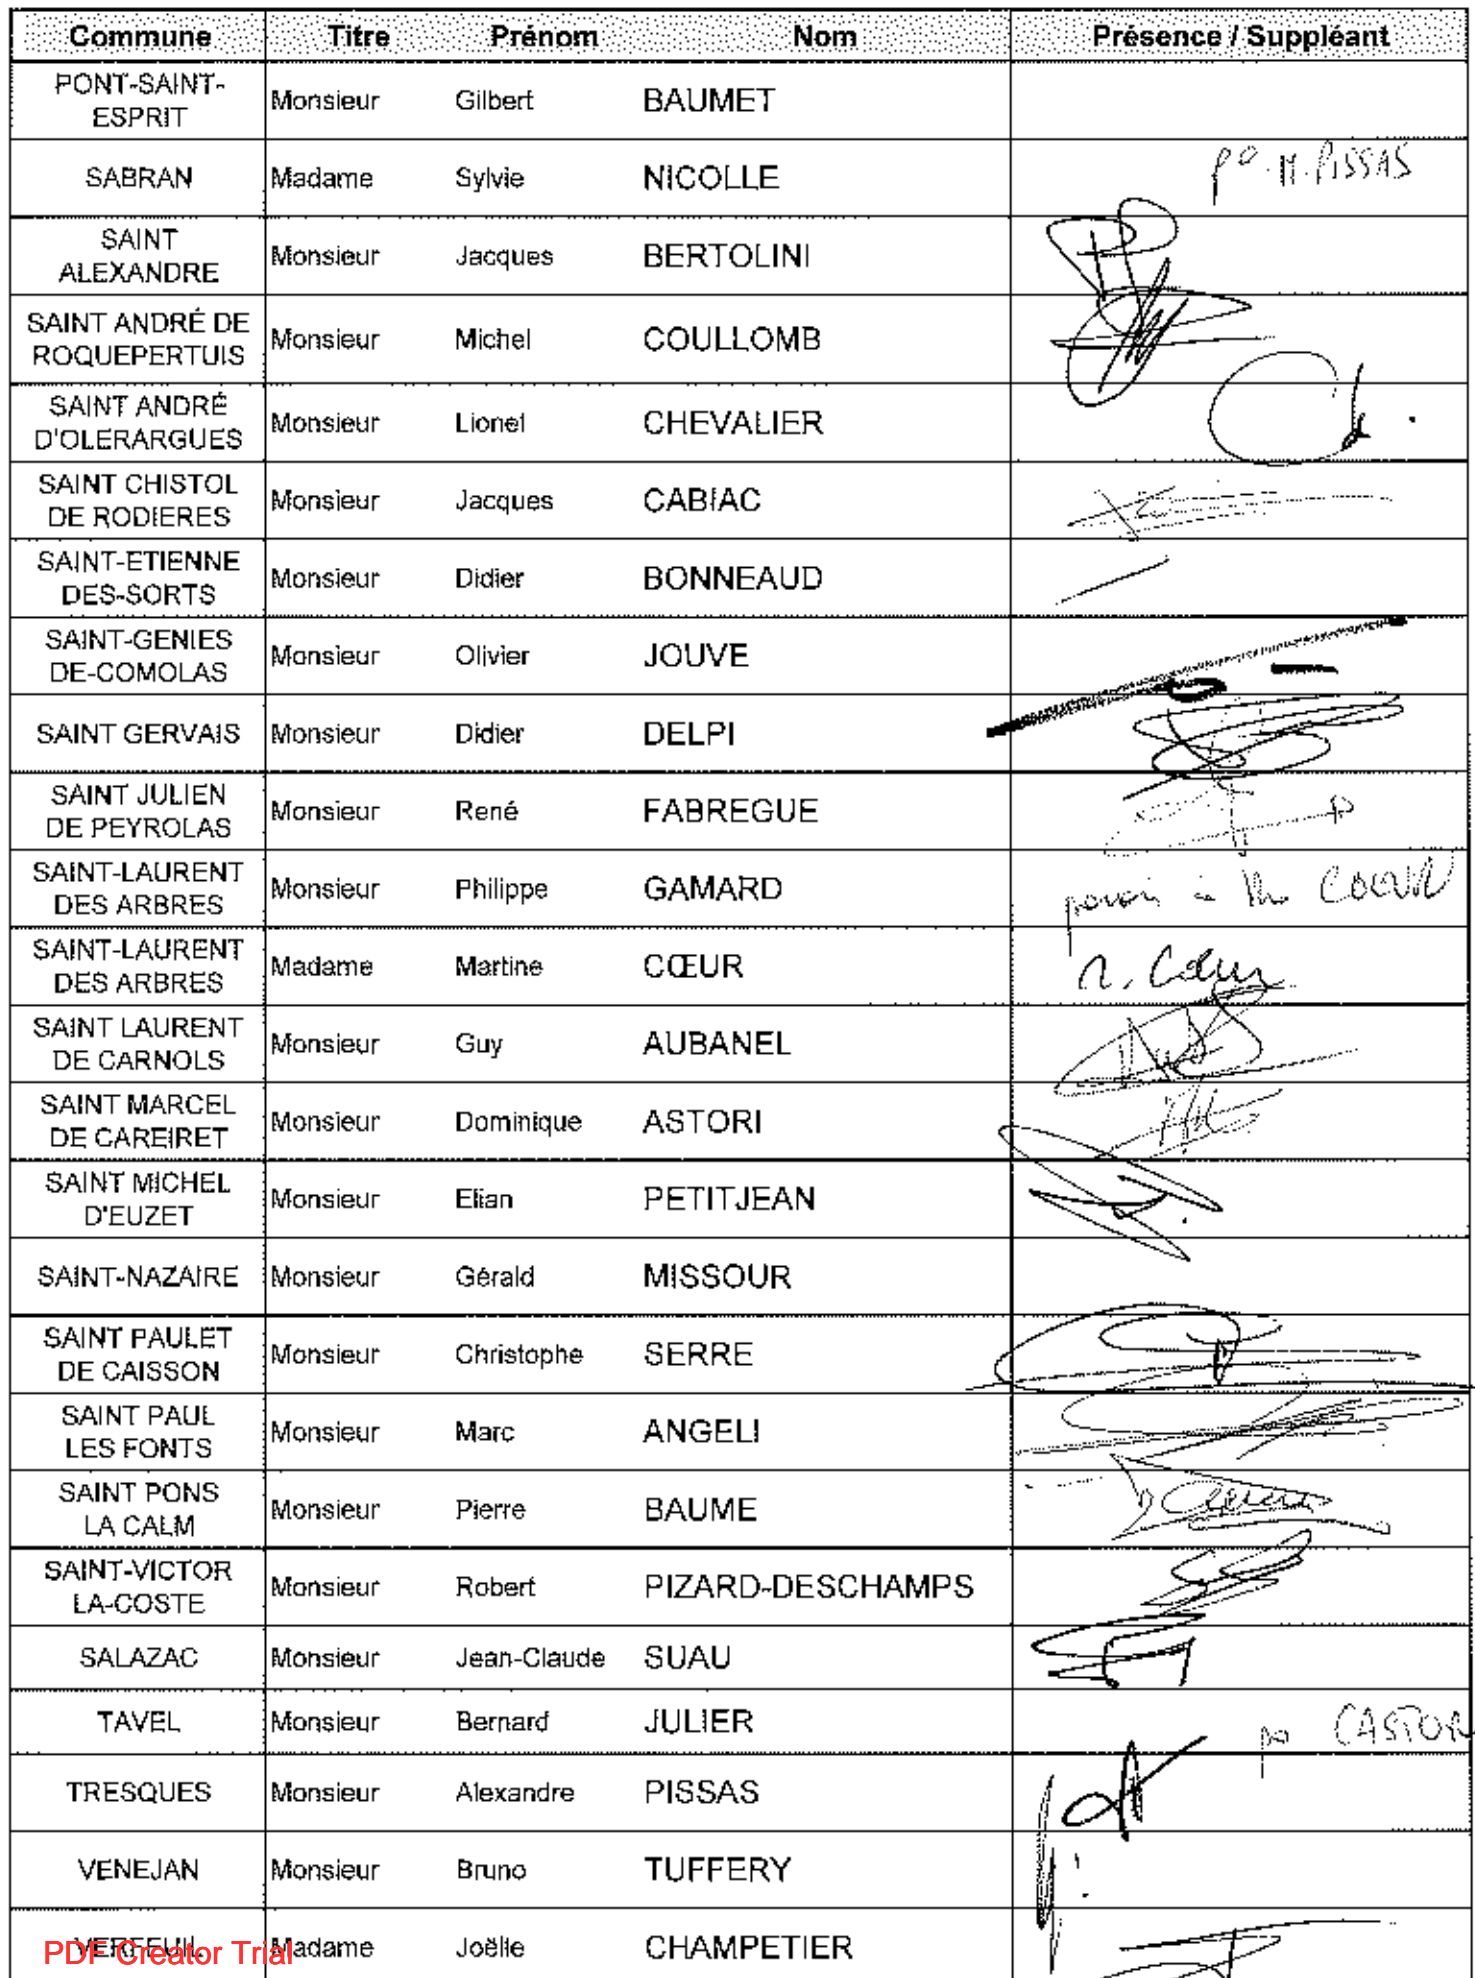 Commune Titre Prénom Nom Présence / Suppléant
PONT-SAINT-
ESPRIT
Monsieur Gilbert BAUMET
SABRAN Madame Sylvie NICOLLE po M. PISSAS
SAINT
ALEXANDRE
Monsieur Jacques BERTOLINI
SAINT ANDRÉ DE
ROQUEPERTUIS
Monsieur Michel COULLOMB
SAINT ANDRÉ
D'OLERARGUES
Monsieur Lionel CHEVALIER
SAINT CHISTOL
DE RODIERES
Monsieur Jacques CABIAC
SAINT-ETIENNE
DES-SORTS
Monsieur Didier BONNEAUD
SAINT-GENIES
DE-COMOLAS
Monsieur Olivier JOUVE
SAINT GERVAIS Monsieur Didier DELPI
SAINT JULIEN
DE PEYROLAS
Monsieur René FABREGUE
SAINT-LAURENT
DES ARBRES
Monsieur Philippe GAMARD COEUR
SAINT-LAURENT
DES ARBRES
Madame Martine CŒUR
SAINT LAURENT
DE CARNOLS
Monsieur Guy AUBANEL
SAINT MARCEL
DE CAREIRET
Monsieur Dominique ASTORI
SAINT MICHEL
D'EUZET
Monsieur Elian PETITJEAN
SAINT-NAZAIRE Monsieur Gérald MISSOUR
SAINT PAULET
DE CAISSON
Monsieur Christophe SERRE
SAINT PAUL
LES FONTS
Monsieur Marc ANGELI
SAINT PONS
LA CALM
Monsieur Pierre BAUME
SAINT-VICTOR
LA-COSTE
Monsieur Robert PIZARD-DESCHAMPS
SALAZAC Monsieur Jean-Claude SUAU
TAVEL Monsieur Bernard JULIER po CASTOR
TRESQUES Monsieur Alexandre PISSAS
VENEJAN Monsieur Bruno TUFFERY
VERFEUIL Madame Joëlle CHAMPETIER
PDF Creator Trial